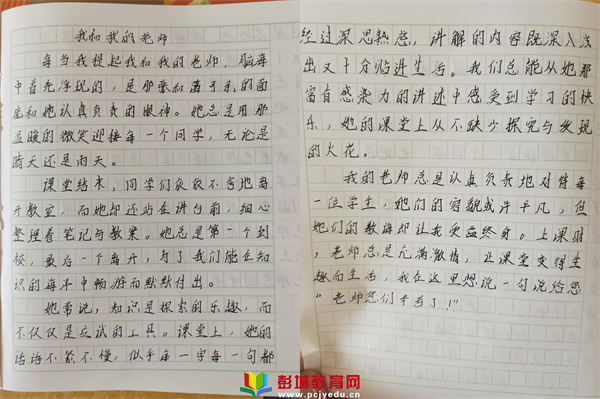 我和我的老师
每当我提起我和我的老师，脑海
中首先浮现的，是那张和蔼可亲的面
庞和她认真负责的眼神。她总是用那
温暖的微笑迎接每一个同学，无论是
晴天还是雨天。
课堂结束，同学们依依不舍地离
开教室，而她却还站在讲台前，细心
整理着笔记与教案。她总是第一个到
校，最后一个离开，为了我们能在知
识的海洋中畅游而默默付出。
她常说，知识是探索的乐趣，而
不仅仅是应试的工具。课堂上，她的
话语不紧不慢，似乎每一字每一句都
经过深思熟虑，讲解的内容既深入浅
出又十分贴进生活。我们总能从她那
富有感染力的讲述中感受到学习的快
乐，她的课堂上从不缺少探究与发现
的火花。
我的老师总是认真负责地对待每
一位学生，她们的容貌或许平凡，但
她们的教诲却让我受益终身。上课时
，老师总是充满激情，让课堂变得生
趣而生活，我在这里想说一句说给您
“老师您们辛苦了！”
彭城教育网
www.pcjyedu.cn